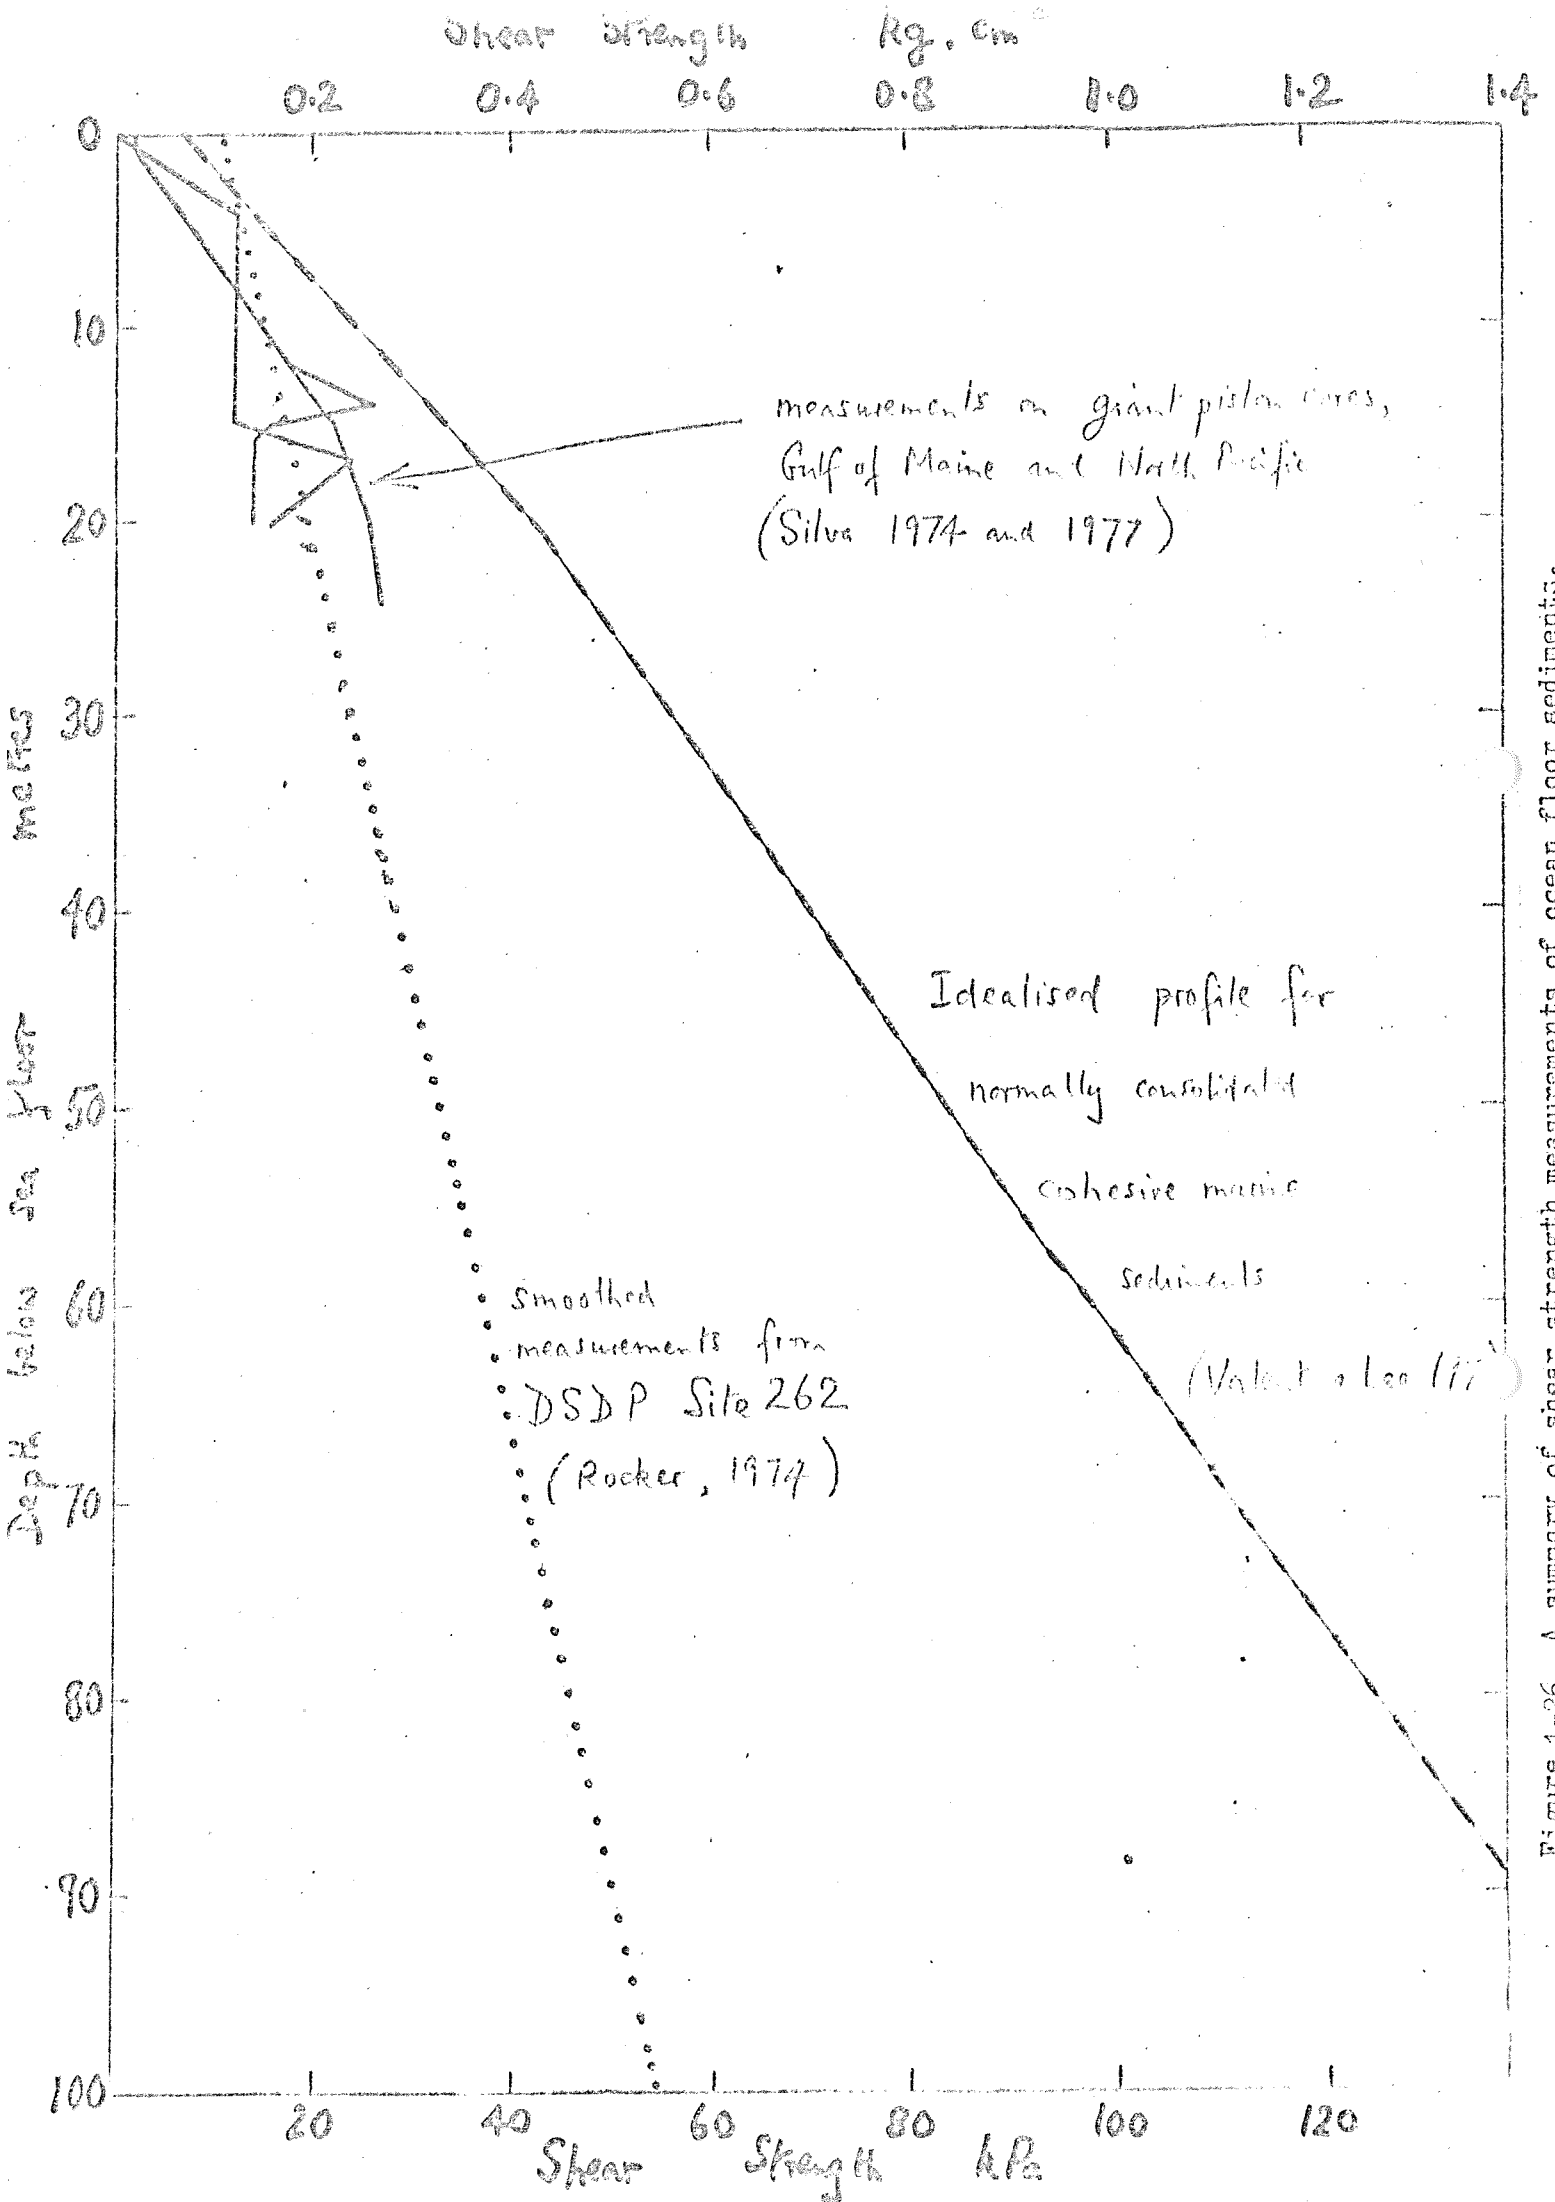 Shear Strength Kg. cm
0.2 0.4 0.6 0.8 1.0 1.2 1.4
0
10
20
30
40
50
60
70
80
90
100
Depth below sea floor metres
measurements on giant piston cores,
Gulf of Maine and North Pacific
(Silva 1974 and 1977)
Idealised profile for
normally consolidated
cohesive marine
sediments
smoothed
measurements from
DSDP Site 262
(Rocker, 1974)
20 40 60 80 100 120
Shear Strength kPa
Figure 1-26 A summary of shear strength measurements of ocean floor sediments.